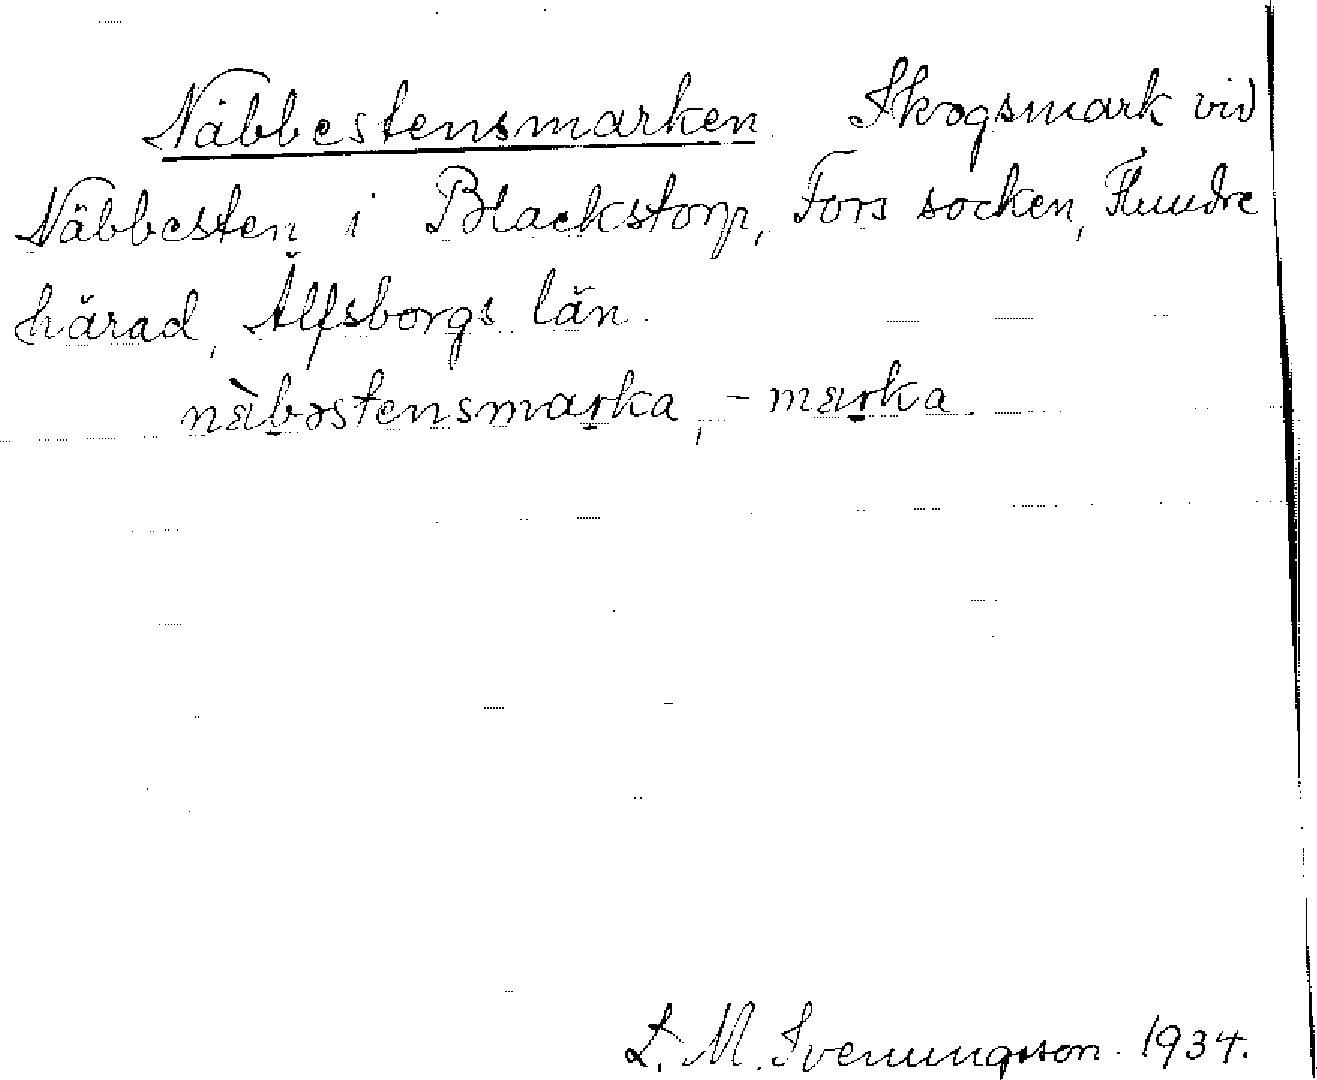 Näbbestensmarken. Skogsmark vid
Näbbesten i Blackstorp, Fors socken, Flundre
härad, Älfsborgs län.
nàbəstensmarka, -marka.
L. M. Svenungsson. 1934.